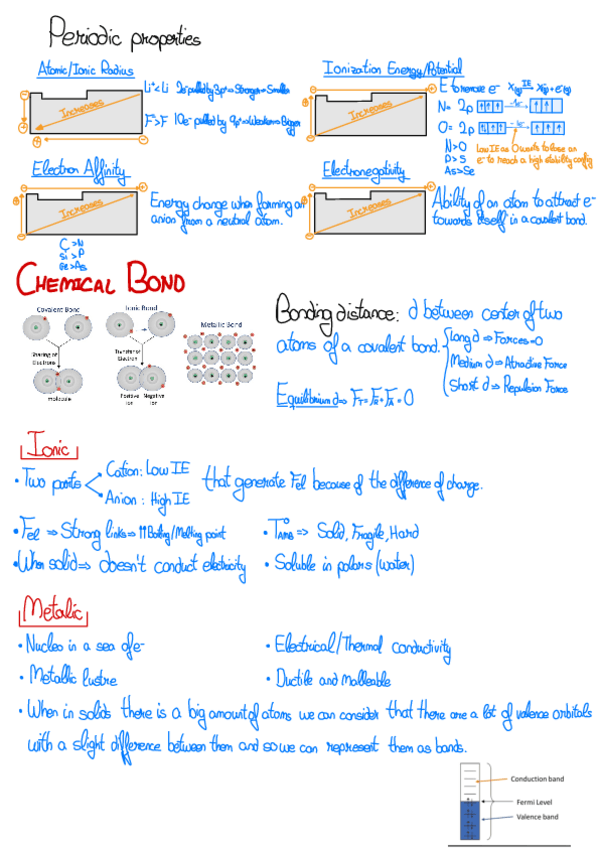 Periodic properties
Atomic/Ionic Radius
Li⁺<Li 2e⁻ pulled by 3p⁺⇒Stronger⇒Smaller
Increases
F⁻>F 10e⁻ pulled by 9p⁺⇒Weaker⇒Bigger
Ionization Energy/Potential
Increases
E to remove e⁻ X(g) IE→ X⁺(g) + e⁻(g)
N= 2p ↑ ↑ ↑ -1e⁻→ ↑ ↑
O= 2p ↑↓ ↑ ↑ -1e⁻→ ↑ ↑ ↑
N>O
P>S
As>Se
Low IE as O wants to lose an
e⁻ to reach a high stability config
Electron Affinity
Increases
C >N
Si >P
Ge>As
Energy change when forming an
anion from a neutral atom.
Electronegativity
Increases
Ability of an atom to attract e⁻
towards itself in a covalent bond.
CHEMICAL BOND
Covalent Bond
Sharing of
Electrons
molecule
Ionic Bond
Transfer of
Electron
Positive
Ion
Negative
Ion
Metallic Bond
Bonding distance: d between center of two
atoms of a covalent bond.
Long d ⇒ Forces=0
Medium d ⇒ Attractive Force
Short d ⇒ Repulsion Force
Equilibrium d⇒ FT=FR+FA=0
Ionic
• Two parts
Cation: Low IE
Anion: High IE
that generate Fel because of the difference of charge.
• Fel ⇒ Strong links⇒ ↑↑Boiling/Melting point
• TºAMB ⇒ Solid, Fragile, Hard
• When solid⇒ doesn't conduct electricity
• Soluble in polars (water)
Metalic
• Nucleo in a sea of e-
• Electrical/Thermal conductivity
• Metallic lustre
• Ductile and Malleable
• When in solids there is a big amount of atoms we can consider that there are a lot of valence orbitals
with a slight difference between them and so we can represent them as bands.
Conduction band
Fermi Level
Valence band